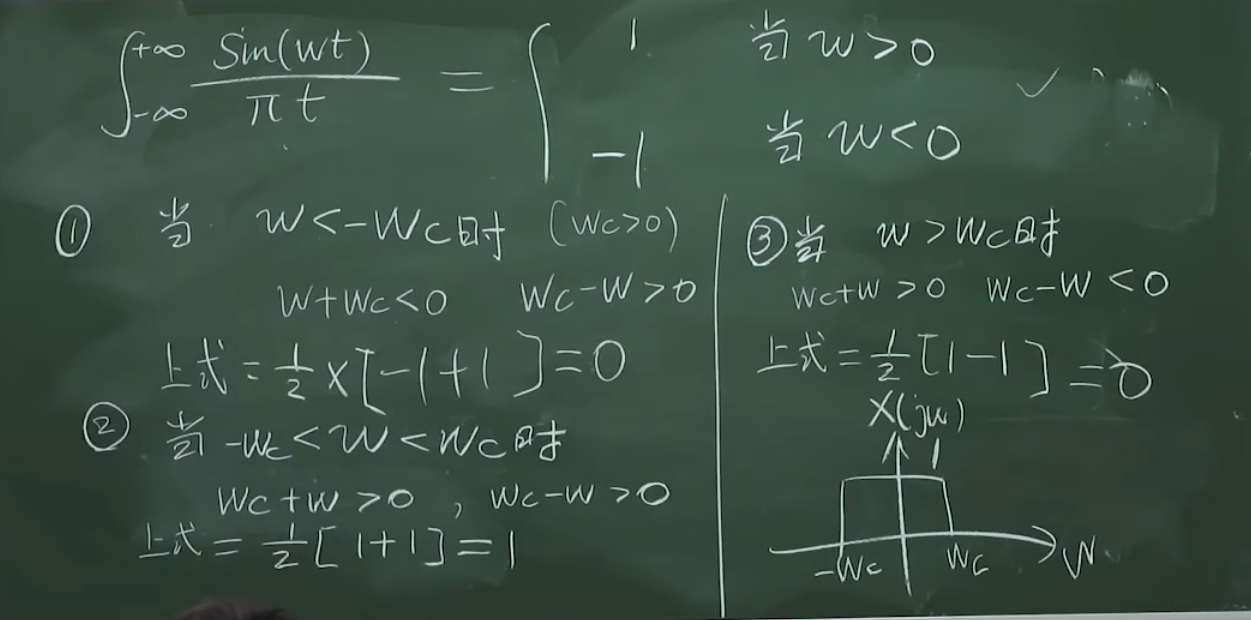 ∫_{-∞}^{+∞} Sin(wt)/πt = { 1 当 w>0
-1 当 w<0
① 当 w<-Wc时 (Wc>0)
W+Wc<0 Wc-W>0
上式=½×[-1+1]=0
② 当 -Wc<W<Wc时
Wc+w>0, Wc-W>0
上式=½[1+1]=1
③当 w>Wc时
Wc+w>0 Wc-W<0
上式=½[1-1]=0
X(jw)
1
-Wc Wc W